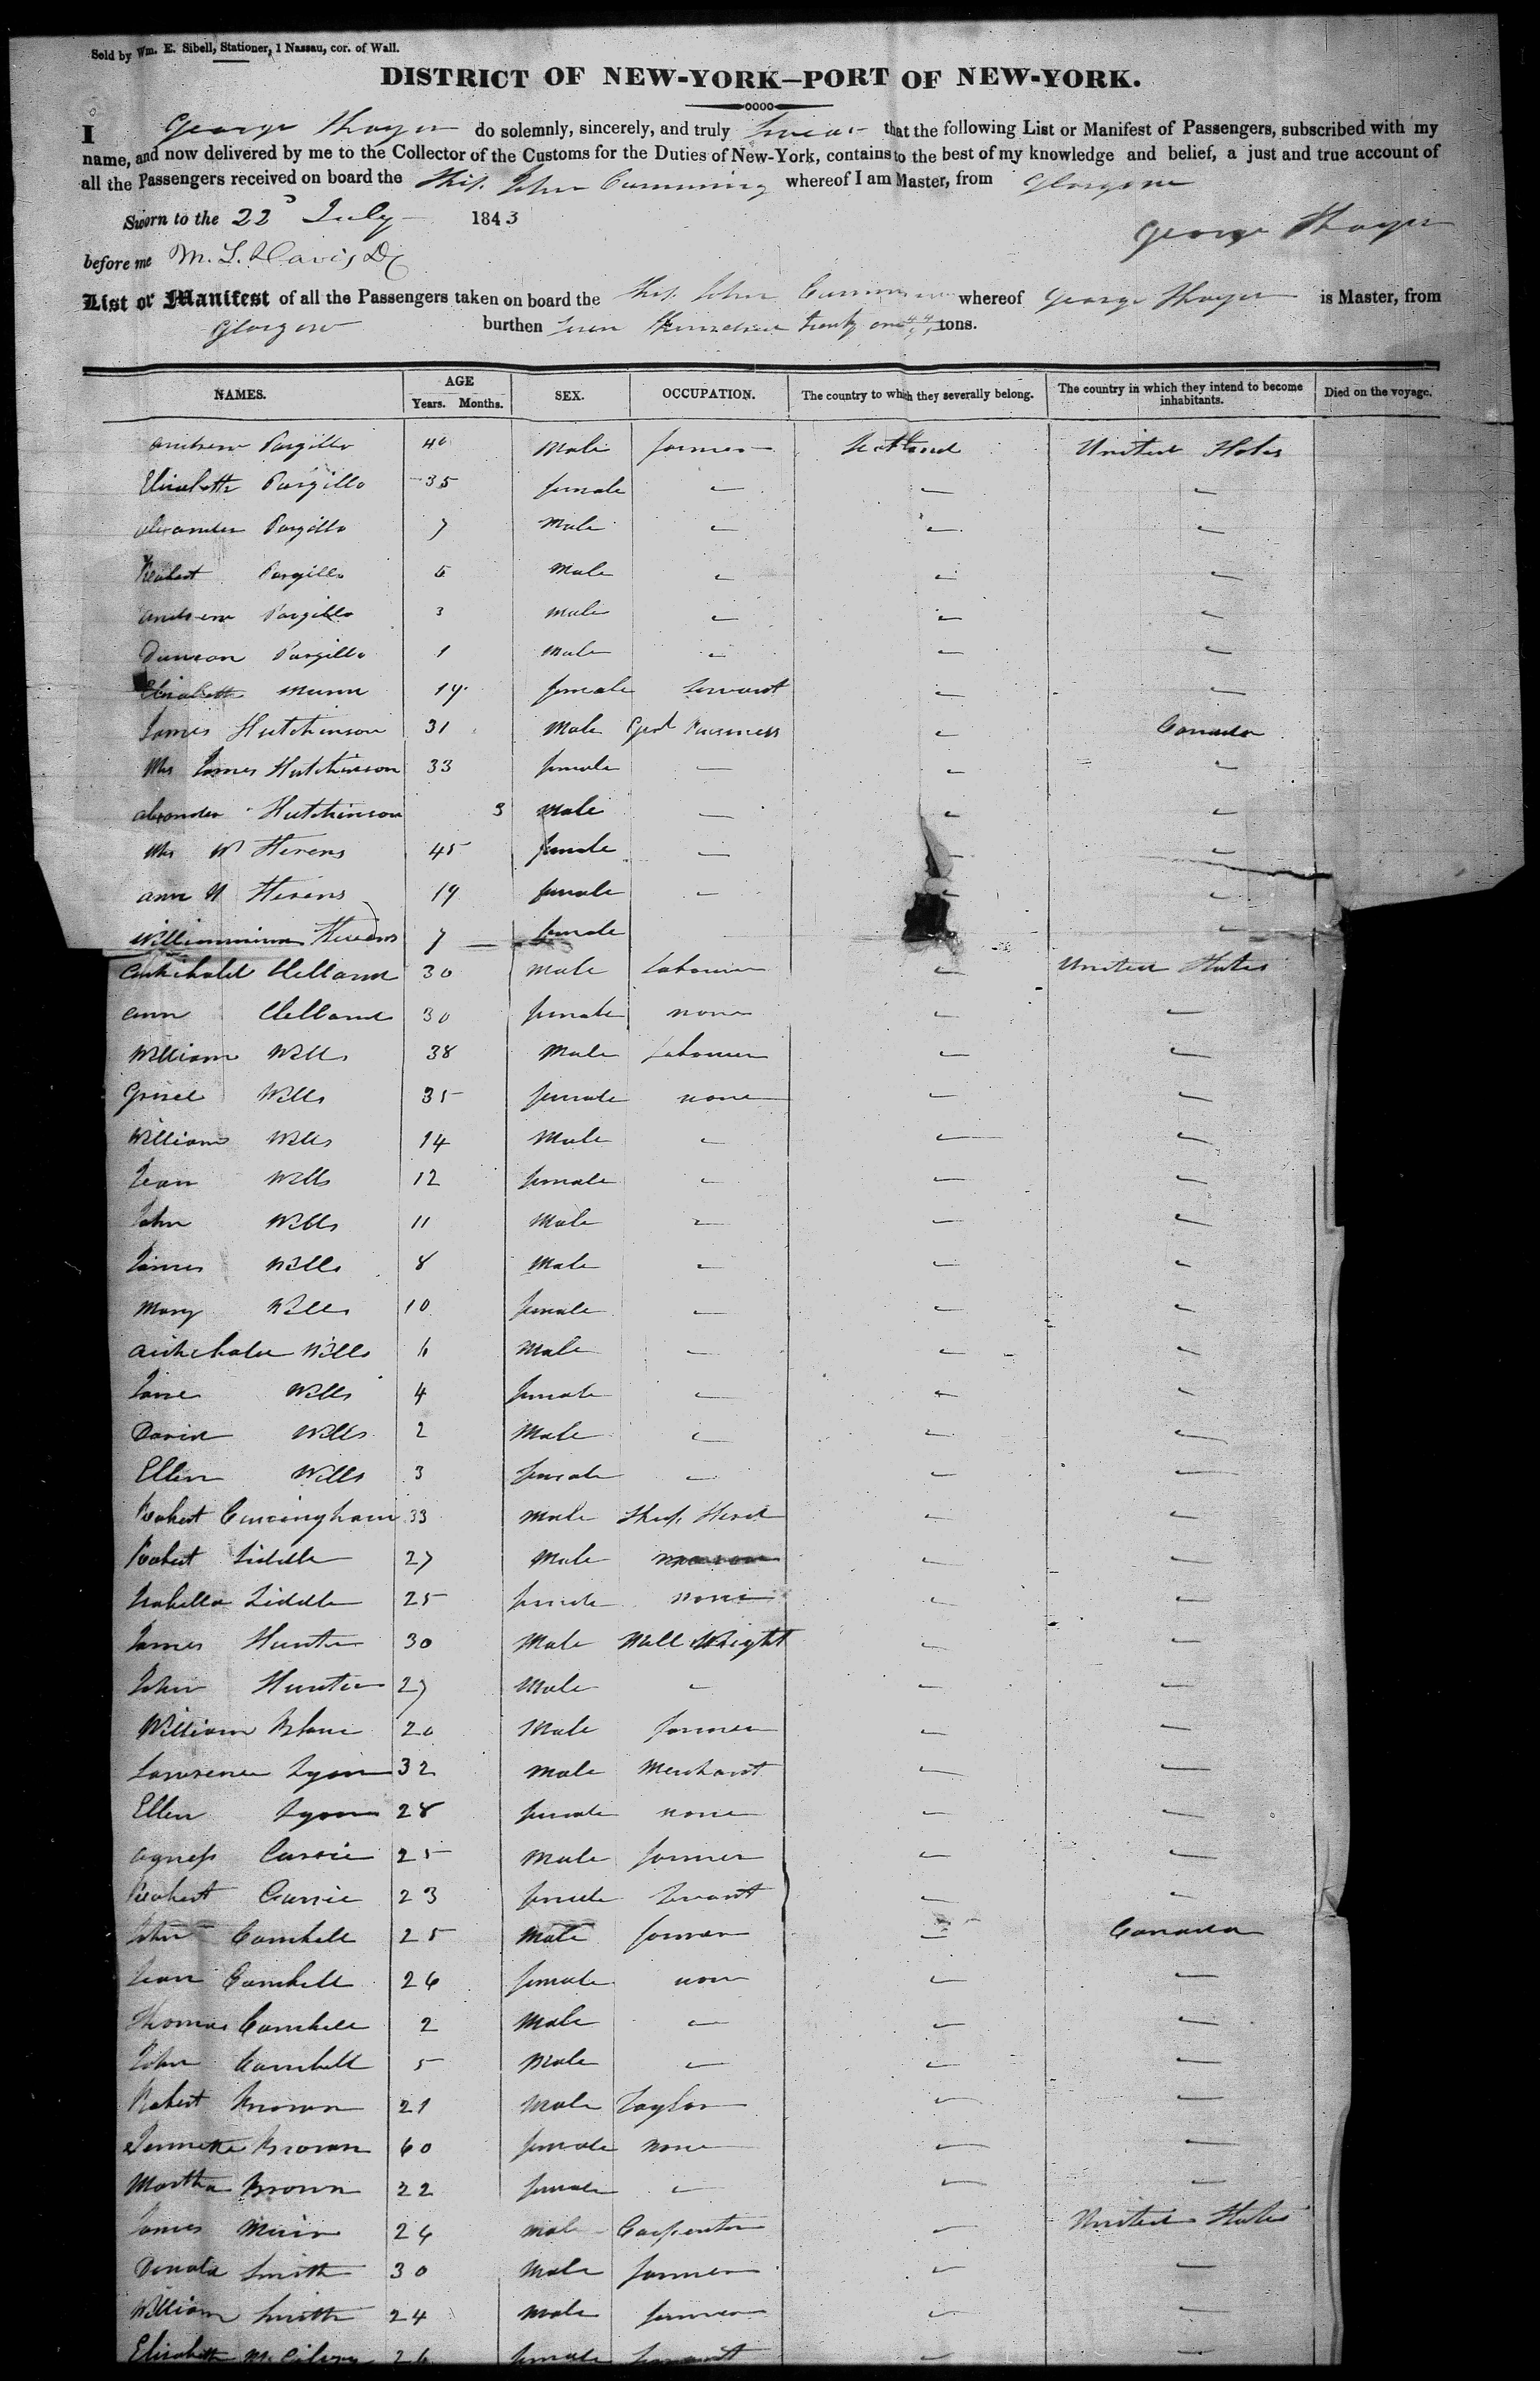 Sold by Wm. E. Sibell, Stationer, 1 Nassau, cor. of Wall.
DISTRICT OF NEW-YORK—PORT OF NEW-YORK.
I George Thayer do solemnly, sincerely, and truly swear that the following List or Manifest of Passengers, subscribed with my
name, and now delivered by me to the Collector of the Customs for the Duties of New-York, contains to the best of my knowledge and belief, a just and true account of
all the Passengers received on board the Ship John Cumming whereof I am Master, from Glasgow
Sworn to the 22d July 1843
George Thayer
before me M. L. Davis
List or Manifest of all the Passengers taken on board the Ship John Cumming whereof George Thayer is Master, from
Glasgow burthen seven hundred twenty one tons.
NAMES. AGE Years. Months. SEX. OCCUPATION. The country to which they severally belong. The country in which they intend to become inhabitants. Died on the voyage.
Andrew Pargillo 40 Male farmer Scotland United States
Elizabeth Pargillo 35 female
Alexander Pargillo 7 Male
Robert Pargillo 5 Male
Andrew Pargillo 3 Male
Duncan Pargillo 1 Male
Elizabeth Munn 19 female Servant
James Hutchinson 31 Male Genl Business Canada
Mrs James Hutchinson 33 female
Alexander Hutchinson 3 Male
Mrs W Stevens 45 female
Ann W Stevens 19 female
Williammina Stevens 7 female
Archibald Clelland 30 Male Labourer United States
Ann Clelland 30 female none
William Wills 38 Male Labourer
Grisel Wills 35 female none
William Wills 14 Male
Jean Wills 12 female
John Wills 11 Male
James Wills 8 Male
Mary Wills 10 female
Archibald Wills 6 Male
Jane Wills 4 female
David Wills 2 Male
Ellen Wills 3 female
Robert Cunningham 33 Male Shep Herd
Robert Liddle 27 Male
Isabella Liddle 25 female none
James Hunter 30 Male Mill Wright
John Hunter 27 Male
William Blane 20 Male farmer
Lawrence Lyon 32 Male Merchant
Ellen Lyon 28 female none
Agness Currie 25 Male farmer
Robert Currie 23 female Servant
John Cambell 25 Male farmer Canada
Jean Cambell 26 female non
Thomas Cambell 2 Male
John Cambell 5 Male
Robert Brown 21 Male Taylor
Jennette Brown 60 female none
Martha Brown 22 female
James Muir 24 male Carpenter United States
Donald Smith 30 Male farmer
William Smith 24 Male farmer
Elizabeth 26 female Servant